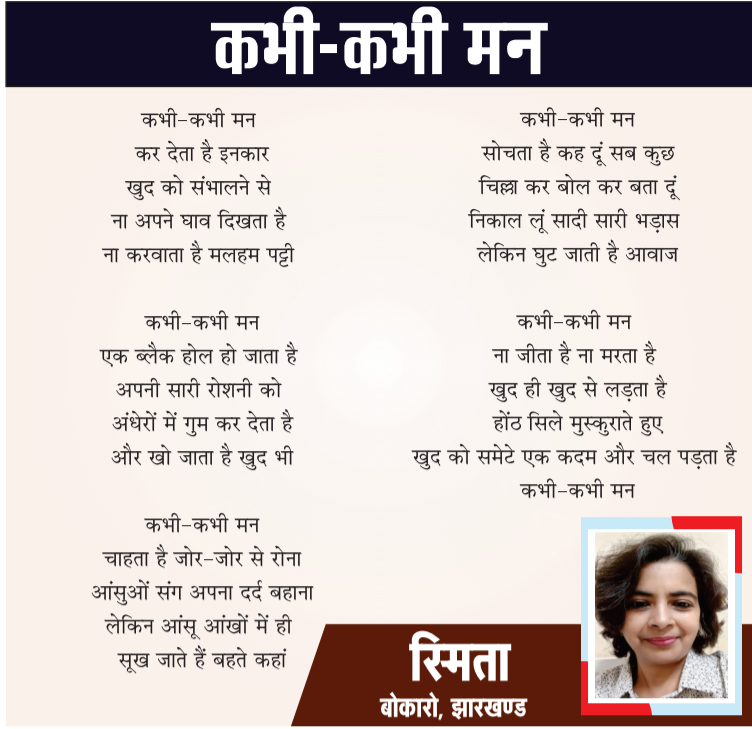 कभी-कभी मन
कभी-कभी मन
कर देता है इनकार
खुद को संभालने से
ना अपने घाव दिखता है
ना करवाता है मलहम पट्टी
कभी-कभी मन
एक ब्लैक होल हो जाता है
अपनी सारी रोशनी को
अंधेरों में गुम कर देता है
और खो जाता है खुद भी
कभी-कभी मन
चाहता है जोर-जोर से रोना
आंसुओं संग अपना दर्द बहाना
लेकिन आंसू आंखों में ही
सूख जाते हैं बहते कहां
कभी-कभी मन
सोचता है कह दूं सब कुछ
चिल्ला कर बोल कर बता दूं
निकाल लूं सादी सारी भड़ास
लेकिन घुट जाती है आवाज
कभी-कभी मन
ना जीता है ना मरता है
खुद ही खुद से लड़ता है
होंठ सिले मुस्कुराते हुए
खुद को समेटे एक कदम और चल पड़ता है
कभी-कभी मन
स्मिता
बोकारो, झारखण्ड